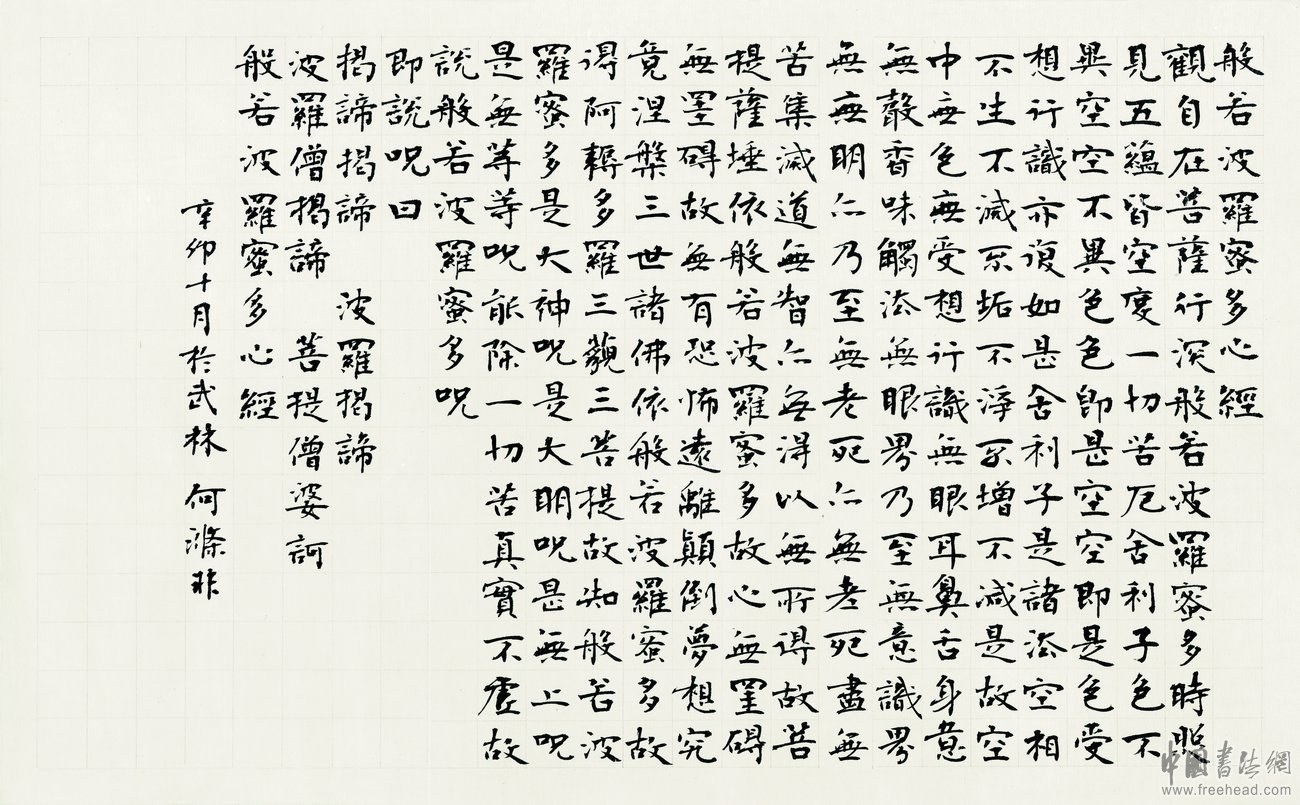 般若波羅蜜多心經
觀自在菩薩行深般若波羅蜜多時照
見五蘊皆空度一切苦厄舍利子色不
異空空不異色色即是空空即是色受
想行識亦復如是舍利子是諸法空相
不生不滅不垢不淨不增不減是故空
中無色無受想行識無眼耳鼻舌身意
無聲香味觸法無眼界乃至無意識界
無無明亦乃至無老死亦無老死盡無
苦集滅道無智亦無得以無所得故菩
提薩埵依般若波羅蜜多故心無罣碍
無罣碍故無有恐怖遠離顛倒夢想究
竟涅槃三世諸佛依般若波羅蜜多故
得阿耨多羅三藐三菩提故知般若波
羅蜜多是大神呪是大明呪是無上呪
是無等等呪能除一切苦真實不虛故
說般若波羅蜜多呪
即說呪曰
揭諦揭諦 波羅揭諦
波羅僧揭諦 菩提僧婆訶
般若波羅蜜多心經
辛卯十月於武林 何滌非
中國書法網
www.freehead.com